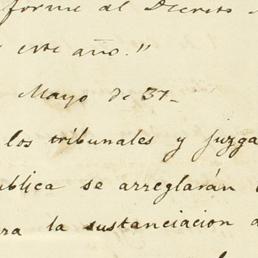 forme al Decreto
este año."
Mayo de 31-
los tribunales y juzga
ública se arreglarán
ra la sustanciacion d